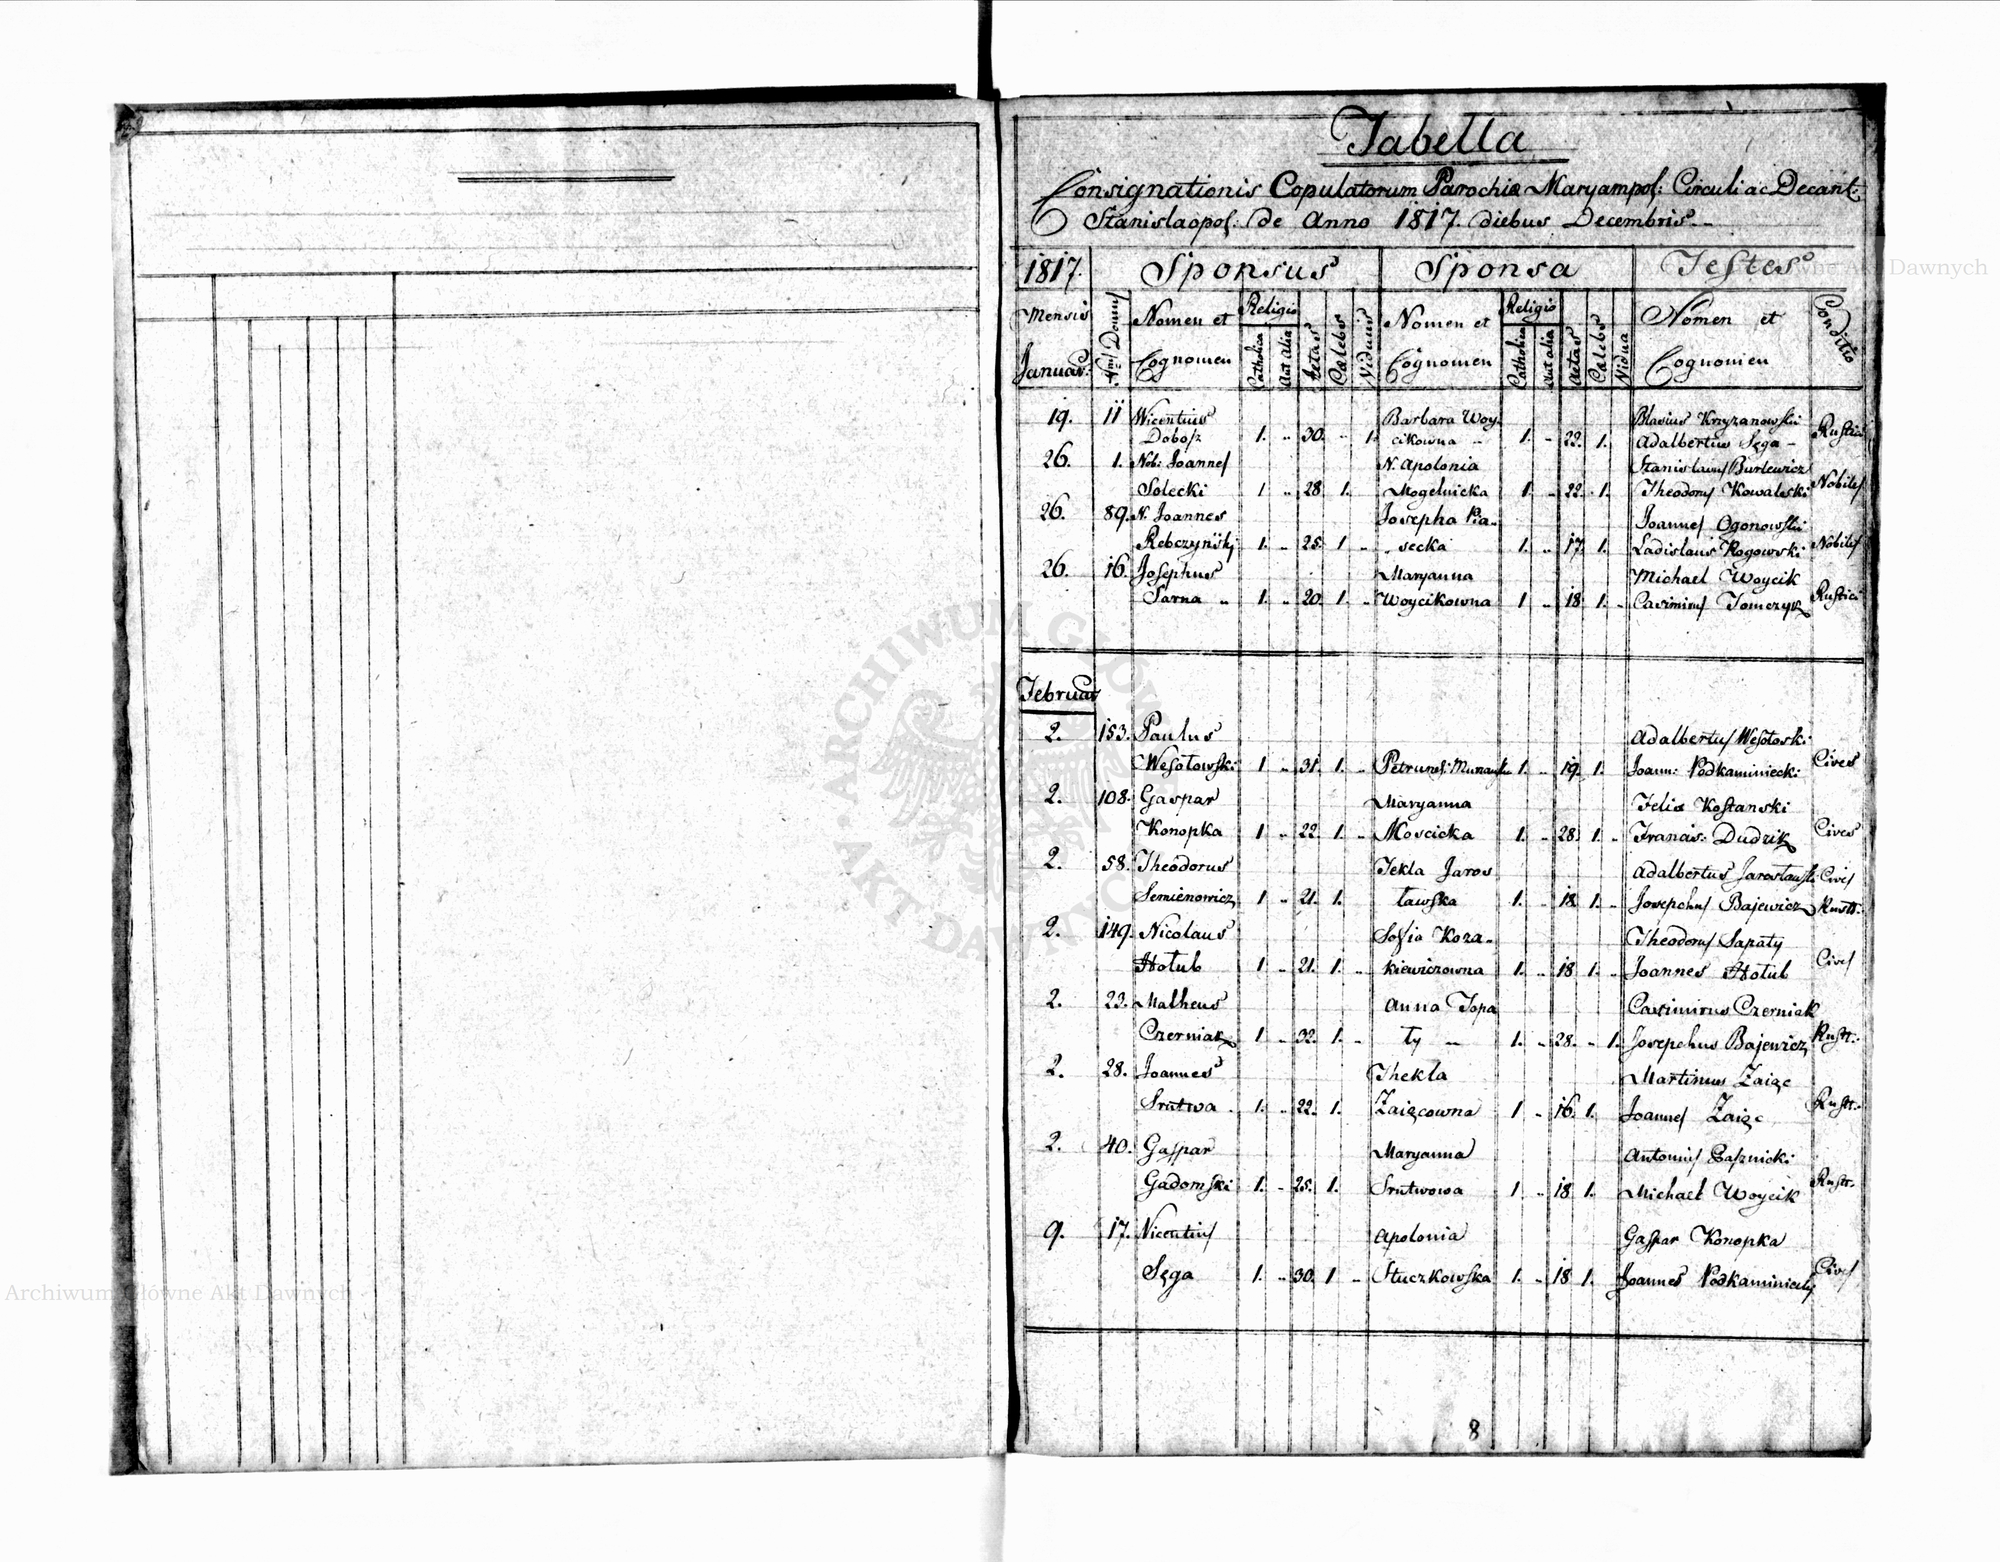 Tabella
Consignationis Copulatorum Parochiæ Maryampol: Circuli ac Decant:
Stanislaopol: de Anno 1817. diebus Decembris.
1817. Sponsus Sponsa Testes
Mensis Januar: Nri Domus Nomen et Cognomen Religio Catholica Aut alia Aetas Cælebs Viduus Nomen et Cognomen Religio Catholica Aut alia Aetas Cælebs Vidua Nomen et Cognomen Conditio
19. 11 Wicentius Barbara Woy- Blasius Krzyzanowski
Dobosz 1. .. 30. .. 1. cikowna .. 1. .. 22. 1. Adalbertus Sęga - Rustici
26. 1. Nob: Joannes N. Apolonia Stanislaus Burlewicz
Solecki 1 .. 28. 1. Mogelnicka 1. .. 22. 1. Theodorus Kowaleski Nobiles
26. 89. N. Joannes Josepha Pia- Joannes Ogonowski
Rebczynskj 1. .. 25. 1 .. secka 1. .. 17. 1. Ladislaus Rogowski Nobiles
26. 16. Josephus Maryanna Michael Woycik
Sarna .. 1. .. 20. 1. .. Woycikowna 1 .. 18. 1. .. Casimirus Tomczyk Rustici
Februar
2. 153. Paulus Adalbertus Wesołoski
Wesołowski 1 .. 31. 1. .. Petrunel: 1. .. 19. 1. Joann: Podkaminiecki Cives
2. 108. Gaspar Maryanna Felix Kostanski
Konopka 1 .. 22. 1. .. Moscicka 1. .. 28. 1. Francis: Dudzik Cives
2. 58. Theodorus Tekla Jaros Adalbertus Jarosławski Cives
Semienowicz 1 .. 21. 1. ławska 1. .. 18 1. .. Josephus Bajewicz Rustt:
2. 149. Nicolaus Sofia Koza- Theodorus Sapaty
Hołub 1 .. 21. 1. .. kiewiczowna 1. .. 18 1. .. Joannes Hołub Cives
2. 23. Matheus Anna Topa Casimirus Czerniak
Czerniak 1 .. 32. 1. .. ty .. 1. .. 28. .. 1. Josephus Bajewicz Rustt:
2. 28. Joannes Thekla Martinus Zaięc
Srutwa 1. .. 22. 1. Zaięcowna 1 .. 16. 1. Joannes Zaięc Rustt:
2. 40. Gaspar Maryanna Antonius
Gadomski 1. .. 25. 1. Srutwowa 1 .. 18 1. Michael Woycik Rustt.
9. 17. Vicentius Apolonia Gaspar Konopka
Sęga 1. .. 30. 1 .. Stuczkowska 1. .. 18 1. Joannes Podkaminiecky Cives
8
ARCHIWUM GŁÓWNE AKT DAWNYCH
Archiwum Główne Akt Dawnych
Archiwum Główne Akt Dawnych